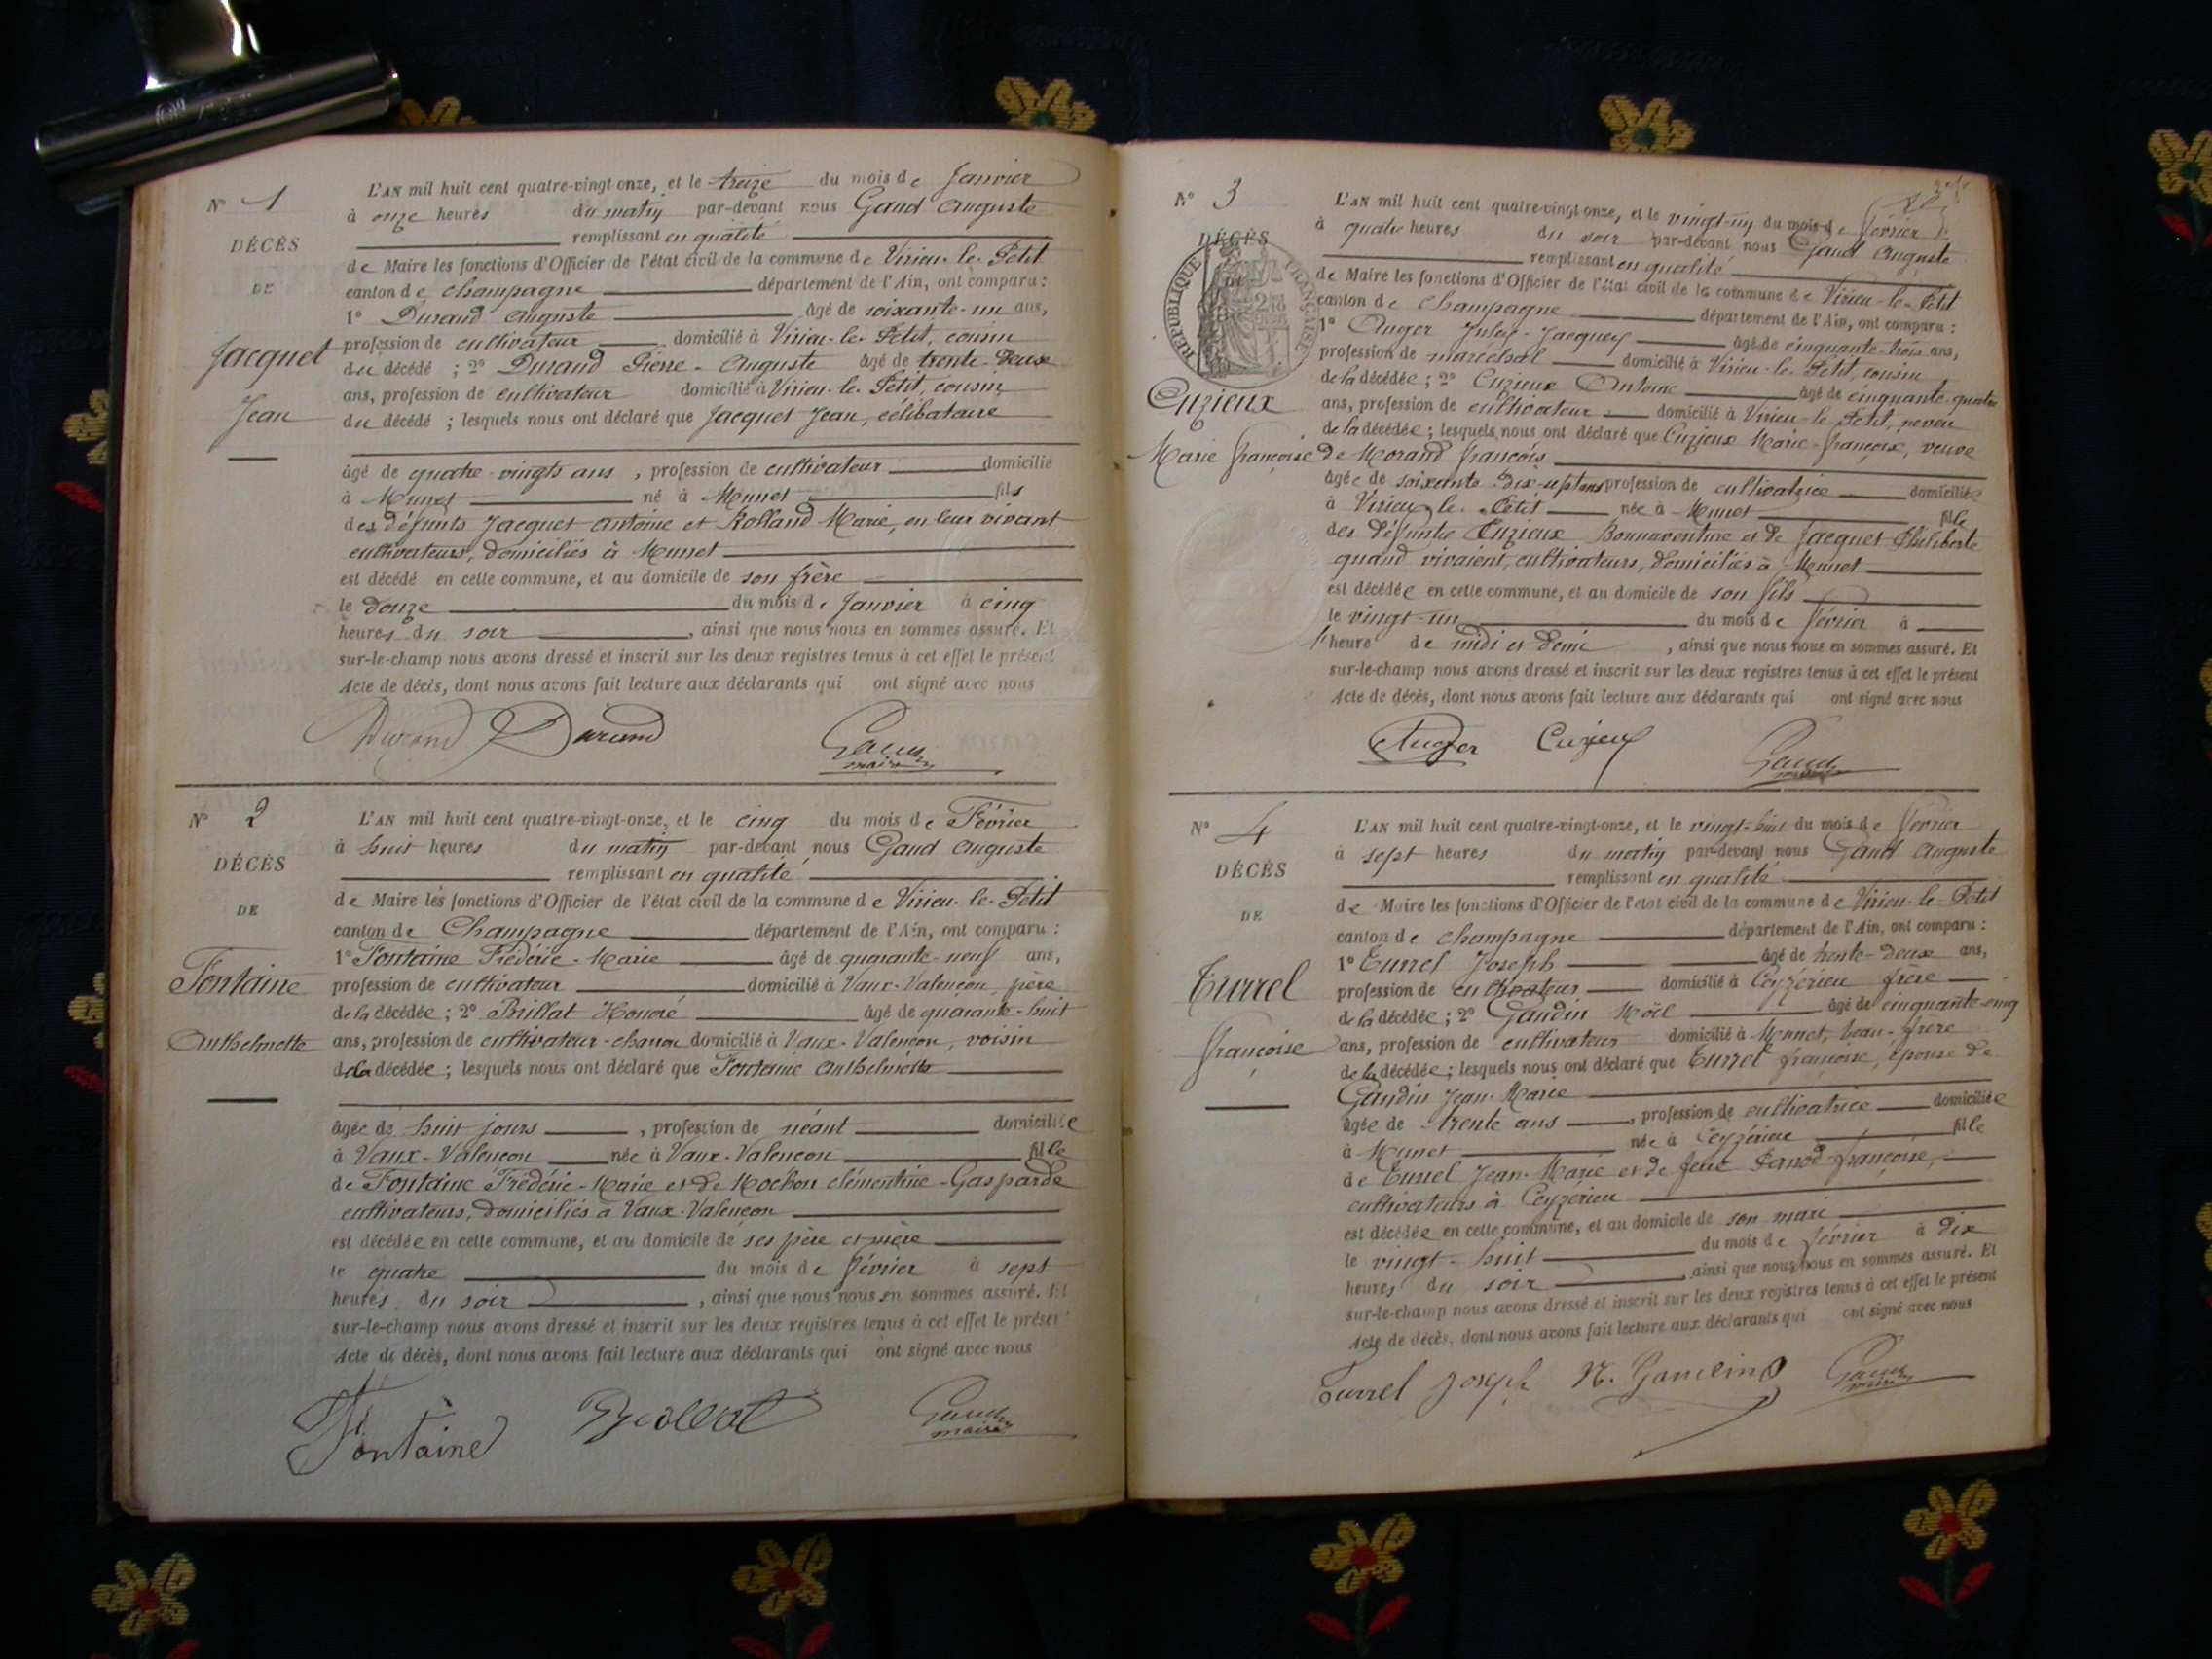 N° 1
DÉCÈS
DE
Jacquet
Jean
L'AN mil huit cent quatre-vingt onze, et le treize du mois de Janvier
à onze heures du matin par-devant nous Gaud Auguste
remplissant en qualité
de Maire les fonctions d'Officier de l'état civil de la commune de Virieu-le-Petit
canton de Champagne département de l'Ain, ont comparu :
1° Durand Auguste âgé de soixante-un ans,
profession de cultivateur domicilié à Virieu-le-Petit, cousin
du décédé ; 2° Durand Pierre-Auguste âgé de trente-deux
ans, profession de cultivateur domicilié à Virieu-le-Petit, cousin
du décédé ; lesquels nous ont déclaré que Jacquet Jean, célibataire
âgé de quatre-vingts ans, profession de cultivateur domicilié
à Munet né à Munet fils
des défunts Jacquet Antoine et Rolland Marie, en leur vivant
cultivateurs, domiciliés à Munet
est décédé en cette commune, et au domicile de son frère
le douze du mois de Janvier à cinq
heures du soir, ainsi que nous nous en sommes assuré. Et
sur-le-champ nous avons dressé et inscrit sur les deux registres tenus à cet effet le présent
Acte de décès, dont nous avons fait lecture aux déclarants qui ont signé avec nous
Durand Durand Gaud
maire
N° 2
DÉCÈS
DE
Fontaine
Anthelmette
L'AN mil huit cent quatre-vingt-onze, et le cinq du mois de Février
à huit heures du matin par-devant nous Gaud Auguste
remplissant en qualité
de Maire les fonctions d'Officier de l'état civil de la commune de Virieu-le-Petit
canton de Champagne département de l'Ain, ont comparu :
1° Fontaine Frédéric-Marie âgé de quarante-neuf ans,
profession de cultivateur domicilié à Vaux-Valençon, père
de la décédée ; 2° Brillat Honoré âgé de quarante-huit
ans, profession de cultivateur domicilié à Vaux-Valençon, voisin
de la décédée ; lesquels nous ont déclaré que Fontaine Anthelmette
âgée de huit jours, profession de néant domiciliée
à Vaux-Valençon née à Vaux-Valençon fille
de Fontaine Frédéric-Marie et de Mochon Clémentine-Gasparde
cultivateurs, domiciliés à Vaux-Valençon
est décédée en cette commune, et au domicile de ses père et mère
le quatre du mois de février à sept
heures du soir, ainsi que nous nous en sommes assuré. Et
sur-le-champ nous avons dressé et inscrit sur les deux registres tenus à cet effet le présent
Acte de décès, dont nous avons fait lecture aux déclarants qui ont signé avec nous
Fontaine Gaud
maire
N° 3
DÉCÈS
RÉPUBLIQUE FRANÇAISE
Cuzieux
Marie Françoise
L'AN mil huit cent quatre-vingt onze, et le vingt-un du mois de février
à quatre heures du soir par-devant nous Gaud Auguste
remplissant en qualité
de Maire les fonctions d'Officier de l'état civil de la commune de Virieu-le-Petit
canton de Champagne département de l'Ain, ont comparu :
1° Auger Jules-Jacques âgé de cinquante-trois ans,
profession de maréchal domicilié à Virieu-le-Petit, cousin
de la décédée ; 2° Cuzieux Antoine âgé de cinquante-quatre
ans, profession de cultivateur domicilié à Virieu-le-Petit, neveu
de la décédée ; lesquels nous ont déclaré que Cuzieux Marie-Françoise, veuve
de Morand François
âgée de soixante-dix-sept ans profession de cultivatrice domiciliée
à Virieu-le-Petit née à Munet fille
des défunts Cuzieux Bonnaventure et de Jacquet Philiberte
quand vivaient, cultivateurs, domiciliés à Munet
est décédée en cette commune, et au domicile de son fils
le vingt-un du mois de février à
l'heure de midi et demi, ainsi que nous nous en sommes assuré. Et
sur-le-champ nous avons dressé et inscrit sur les deux registres tenus à cet effet le présent
Acte de décès, dont nous avons fait lecture aux déclarants qui ont signé avec nous
Auger Cuzieux Gaud
maire
N° 4
DÉCÈS
DE
Turrel
Françoise
L'AN mil huit cent quatre-vingt-onze, et le vingt-huit du mois de février
à sept heures du matin par-devant nous Gaud Auguste
remplissant en qualité
de Maire les fonctions d'Officier de l'état civil de la commune de Virieu-le-Petit
canton de Champagne département de l'Ain, ont comparu :
1° Turrel Joseph âgé de trente-deux ans,
profession de cultivateur domicilié à Ceyzérieu frère
de la décédée ; 2° Gaudin Noël âgé de cinquante-cinq
ans, profession de cultivateur domicilié à Munet, beau-frère
de la décédée ; lesquels nous ont déclaré que Turrel Françoise, épouse de
Gaudin Jean-Marie
âgée de trente ans, profession de cultivatrice domiciliée
à Munet née à Ceyzérieu fille
de Turrel Jean-Marie et de feue Françoise,
cultivateurs à Ceyzérieu
est décédée en cette commune, et au domicile de son mari
le vingt-huit du mois de février à dix
heures du soir, ainsi que nous nous en sommes assuré. Et
sur-le-champ nous avons dressé et inscrit sur les deux registres tenus à cet effet le présent
Acte de décès, dont nous avons fait lecture aux déclarants qui ont signé avec nous
Turrel Joseph N. Gaudin Gaud
maire